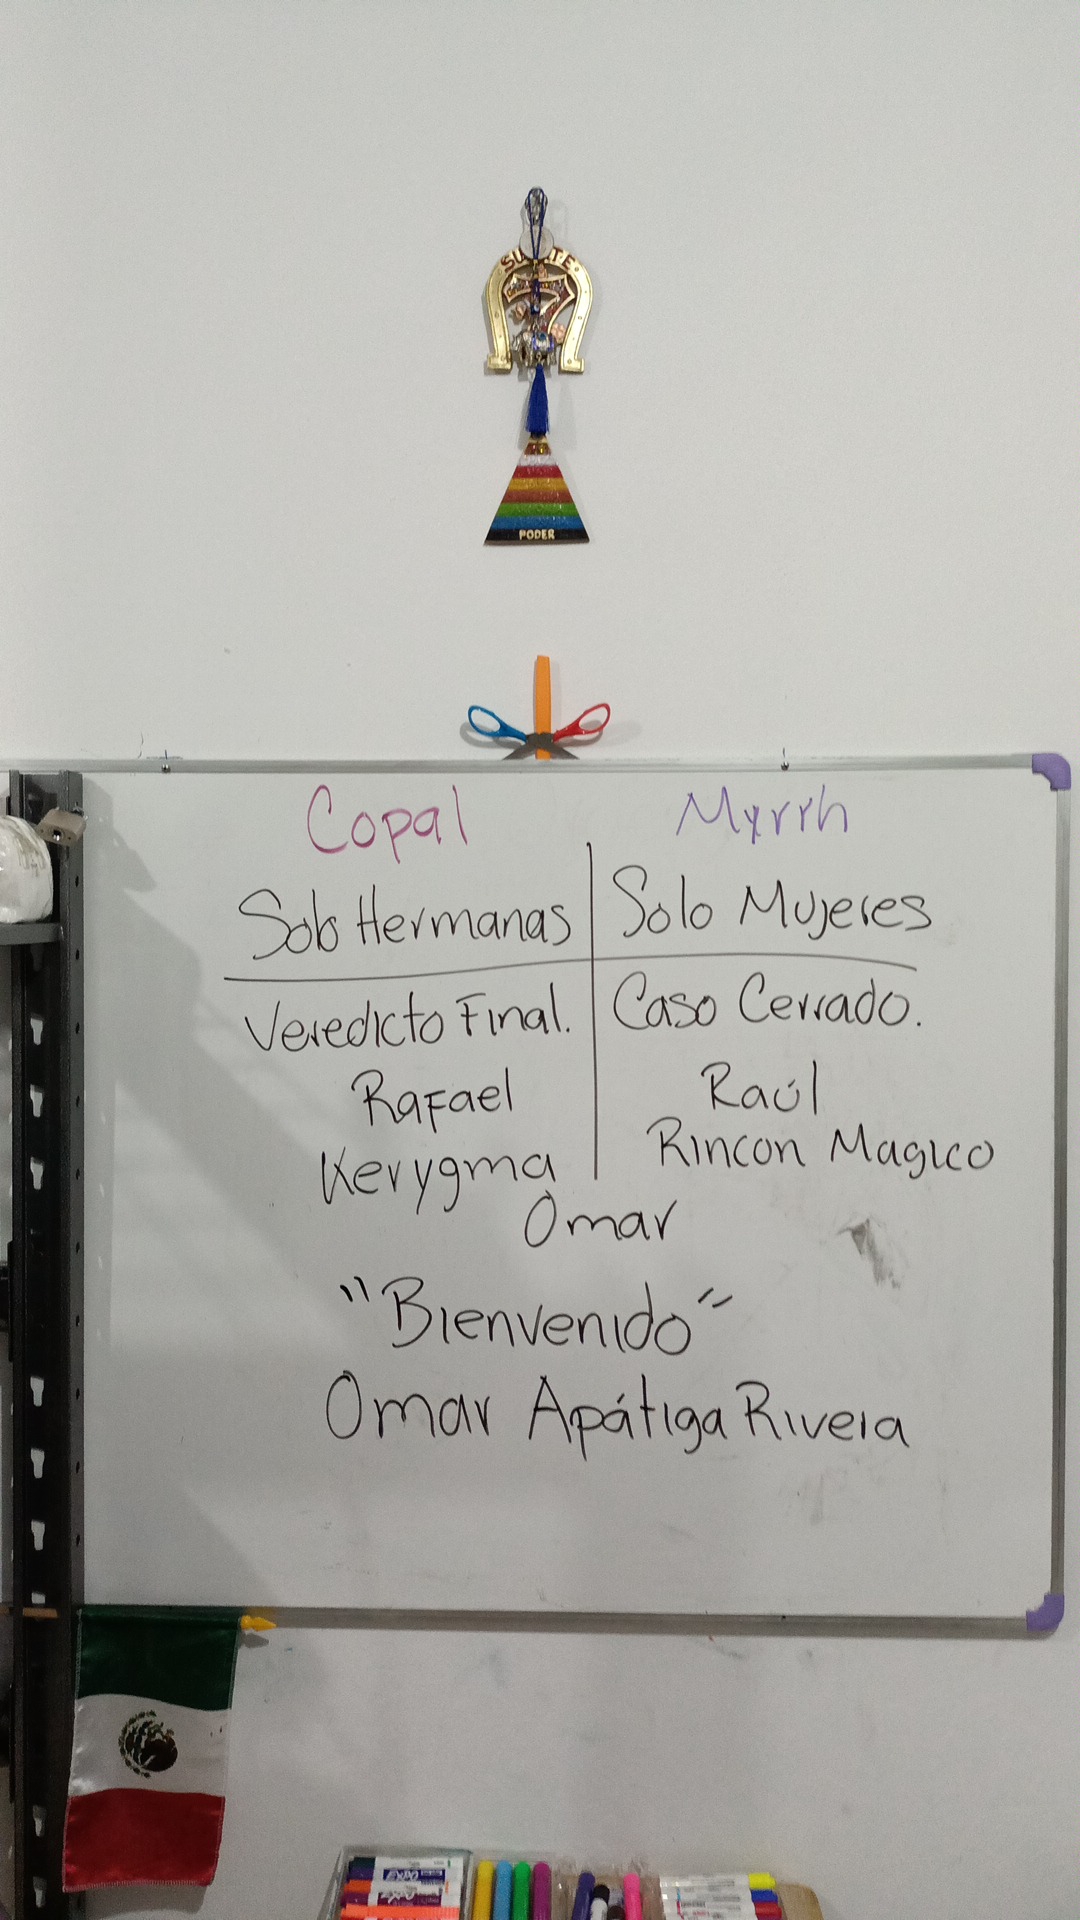 SUERTE
7
PODER
Copal Myrrh
Solo Hermanas Solo Mujeres
Veredicto Final. Caso Cerrado.
Rafael Raúl
Kerygma Rincon Magico
Omar
"Bienvenido"
Omar Apátiga Rivera
EXPO